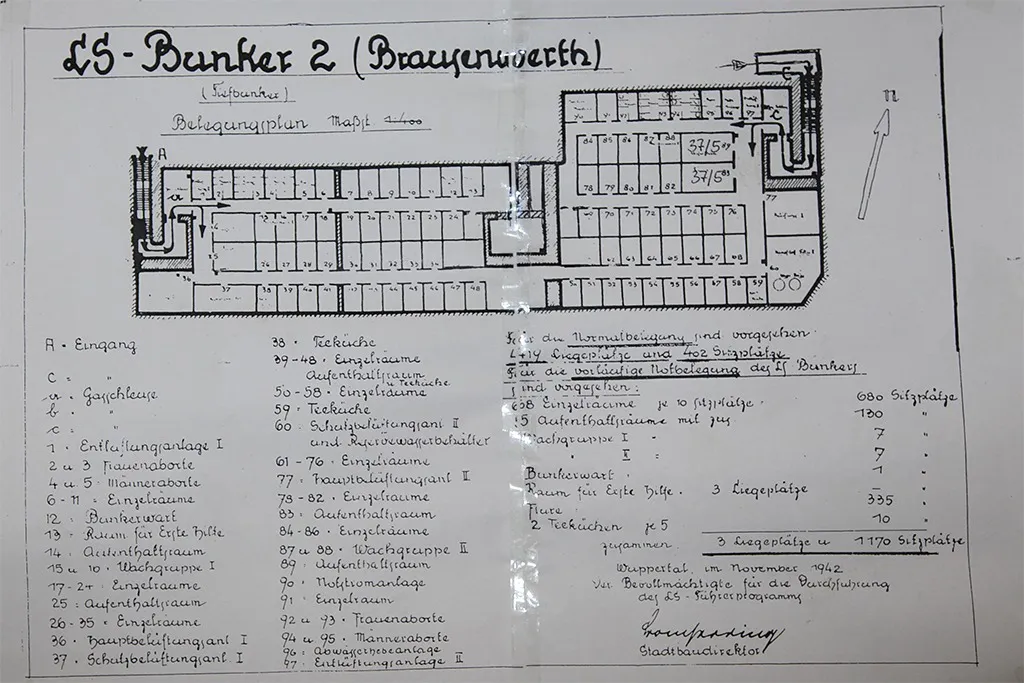 LS-Bunker 2 (Brausenwerth)
(Tiefbunker)
Belegungsplan Maßst. 1:400
A
C
n
a
c
37/5
37/5
A = Eingang
C = "
a = Gasschleuse
b = "
c = "
1 = Entlüftungsanlage I
2 u 3 Frauenaborte
4 u. 5 = Männeraborte
6-11 = Einzelräume
12 = Bunkerwart
13 = Raum für Erste Hilfe
14 = Aufenthaltsraum
15 u 16 = Wachgruppe I
17-24 = Einzelräume
25 = Aufenthaltsraum
26-35 = Einzelräume
36 = Hauptbelüftungsanl I
37 = Schutzbelüftungsanl. I
38 = Teeküche
39-48 = Einzelräume
Aufenthaltsraum
u Teeküche
50-58 = Einzelräume
59 = Teeküche
60 = Schutzbelüftungsanl II
und Reservewasserbehälter
61-76 = Einzelräume
77 = Hauptbelüftungsanl II
78-82 = Einzelräume
83 = Aufenthaltsraum
84-86 = Einzelräume
87 u 88 = Wachgruppe II
89 = Aufenthaltsraum
90 = Notstromanlage
91 = Einzelraum
92 u 93 = Frauenaborte
94 u 95 = Männeraborte
96 = Abwasserhebeanlage
97 = Entlüftungsanlage II
Für die Normalbelegung sind vorgesehen
419 Liegeplätze und 402 Sitzplätze
Für die vorläufige Notbelegung des LS Bunkers
sind vorgesehen:
68 Einzelräume je 10 Sitzplätze = 680 Sitzplätze
5 Aufenthaltsräume mit zus. 130 "
Wachgruppe I = 7 "
" II = 7 "
Bunkerwart 1 "
Raum für Erste Hilfe = 3 Liegeplätze –
Flure 335 "
2 Teeküchen je 5 10 "
zusammen 3 Liegeplätze u 1170 Sitzplätze
Wuppertal, im November 1942
Der Bevollmächtigte für die Durchführung
des LS-Führerprogramms
Stadtbaudirektor